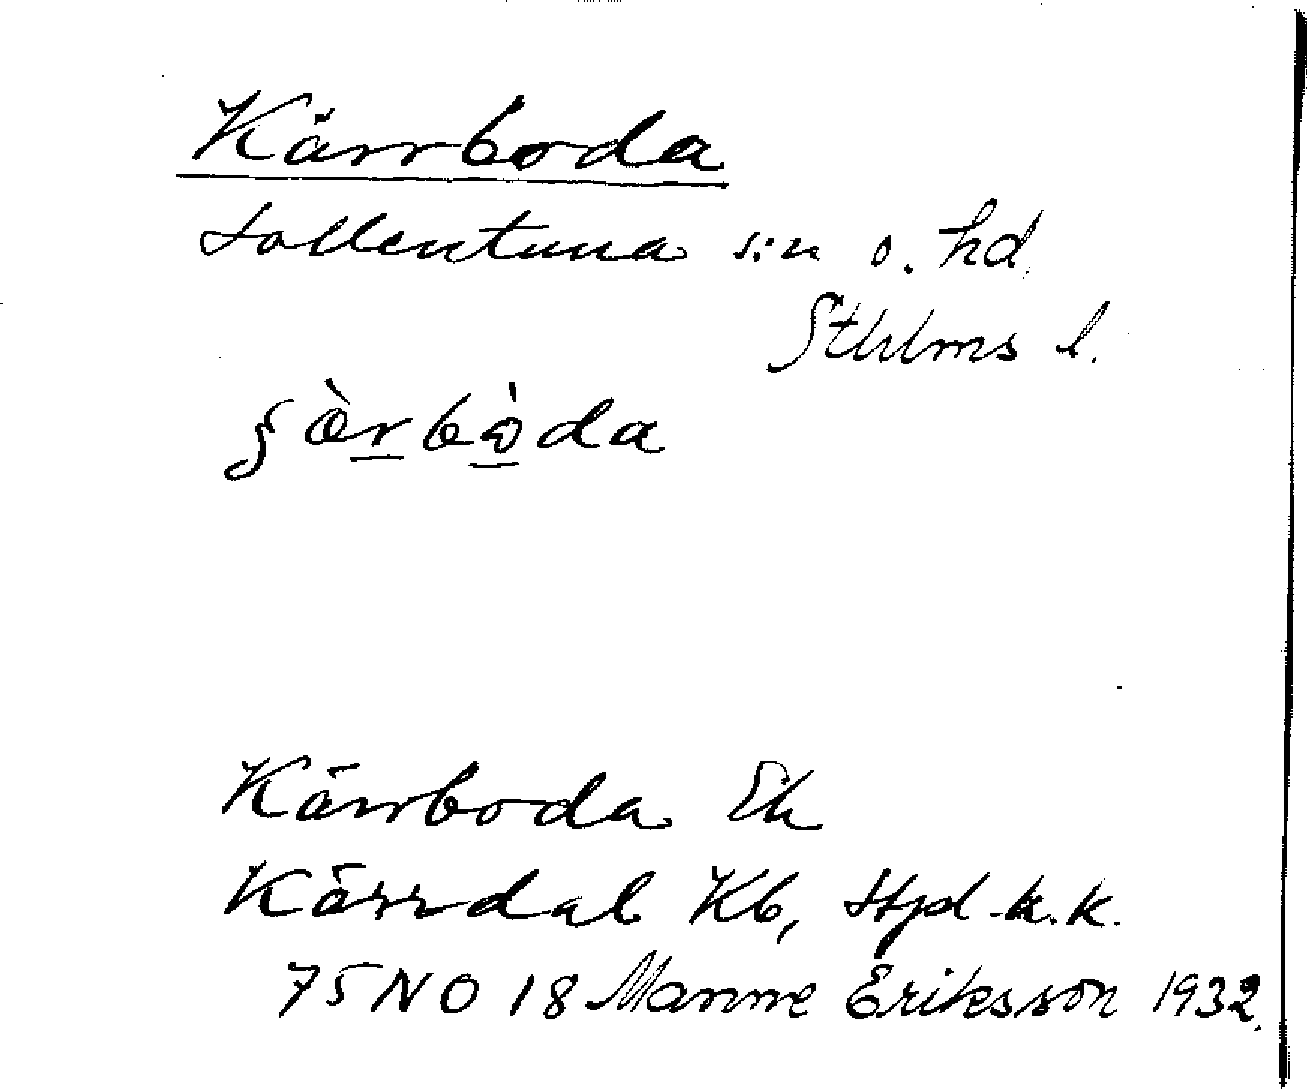 Kärrboda
Sollentuna s:n o. hd.
Sthlms l.
Kärrboda Ek
Kärrdal Kb, Hfd. k.k.
75 NO 18 Manne Eriksson 1932.